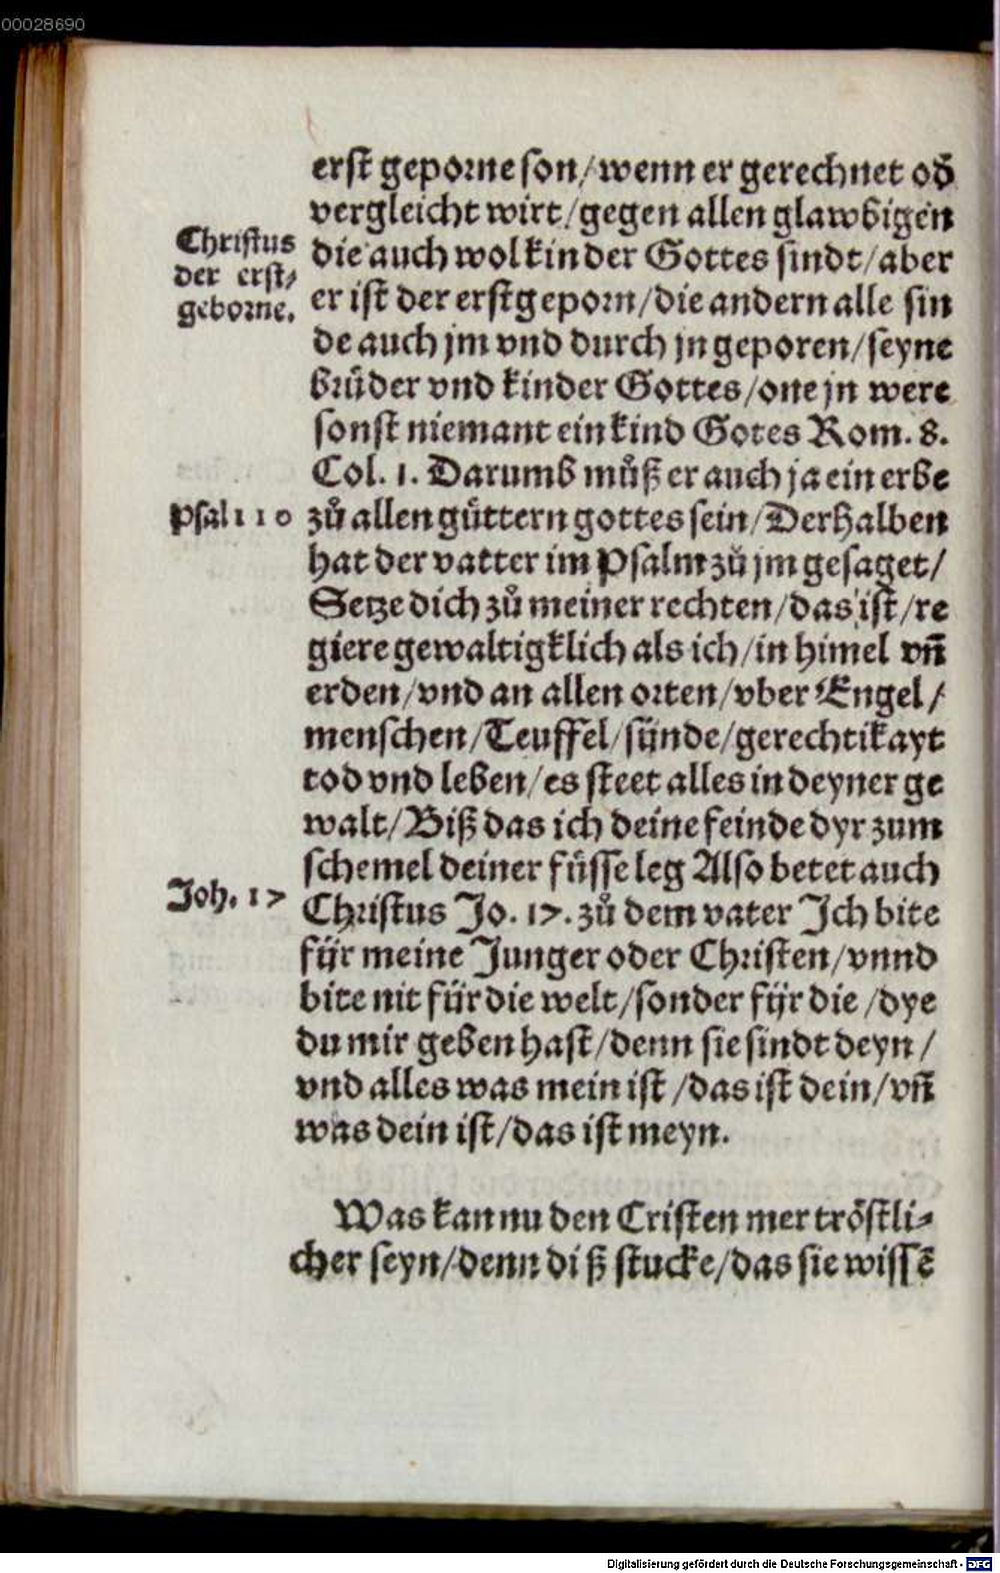 00028690
erst geporne son/wenn er gerechnet od̄
vergleicht wirt/gegen allen glawbigen
Christus
der erst⸗
geborne.
die auch wol kinder Gottes sindt/aber
er ist der erstgeporn/die andern alle sin
de auch jm vnd durch jn geporen/seyne
brüder vnd kinder Gottes/one jn were
sonst niemant ein kind Gotes Rom. 8.
Col. 1. Darumb můß er auch ja ein erbe
Psal 110
zů allen güttern gottes sein/Derhalben
hat der vatter im Psalm zů jm gesaget/
Setze dich zů meiner rechten/das ist/re
giere gewaltigklich als ich/in himel vn̄
erden/vnd an allen orten/vber Engel/
menschen/Teuffel/sünde/gerechtikayt
tod vnd leben/es steet alles in deyner ge
walt/Biß das ich deine feinde dyr zum
schemel deiner füsse leg Also betet auch
Joh. 17
Christus Jo. 17. zů dem vater Jch bite
für meine Junger oder Christen/vnnd
bite nit für die welt/sonder für die/dye
du mir geben hast/denn sie sindt deyn/
vnd alles was mein ist/das ist dein/vn̄
was dein ist/das ist meyn.
Was kan nu den Cristen mer tröstli⸗
cher seyn/denn diß stucke/das sie wissē
Digitalisierung gefördert durch die Deutsche Forschungsgemeinschaft - DFG